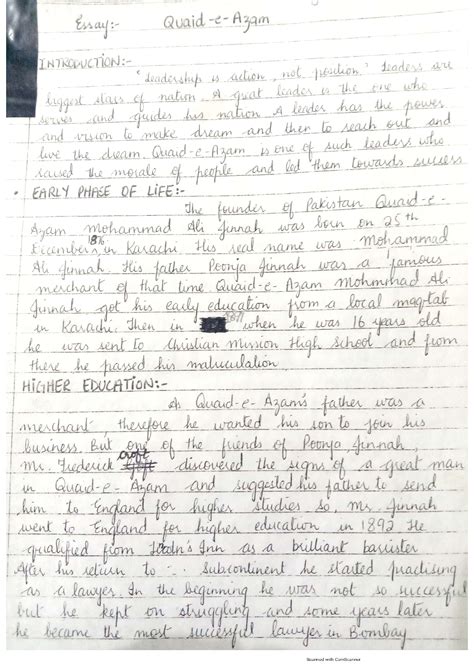 Essay:- Quaid-e-Azam
INTRODUCTION:-
"Leadership is action, not position." Leaders are
biggest stars of nation. A great leader is the one who
serves and guides his nation. A leader has the power
and vision to make dream and then to reach out and
live the dream. Quaid-e-Azam is one of such leaders who
raised the morale of people and led them towards success
• EARLY PHASE OF LIFE:-
The founder of Pakistan Quaid-e-
Azam Mohammad Ali Jinnah was born on 25th
December, 1876 in Karachi. His real name was Mohammad
Ali Jinnah. His father Poonja Jinnah was a famous
merchant of that time. Quaid-e-Azam Mohmmad Ali
Jinnah got his early education from a local maqtab
in Karachi. Then in when he was 16 years old
he was sent to Christian Mission High School and from
there he passed his matriculation.
HIGHER EDUCATION:-
As Quaid-e-Azam's father was a
merchant, therefore he wanted his son to join his
business. But one of the friends of Poonja Jinnah,
Mr. Frederick croft discovered the signs of a great man
in Quaid-e-Azam and suggested his father to send
him to England for higher studies. So, Mr. Jinnah
went to England for higher education in 1892. He
qualified from Inn as a brilliant barister
After his return to Subcontinent he started practising
as a lawyer. In the beginning he was not so successful
but he kept on struggling and some years later
he became the most successful lawyer in Bombay
Scanned with CamScanner